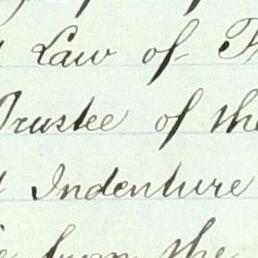 Law of
Trustee of the
Indenture
from the